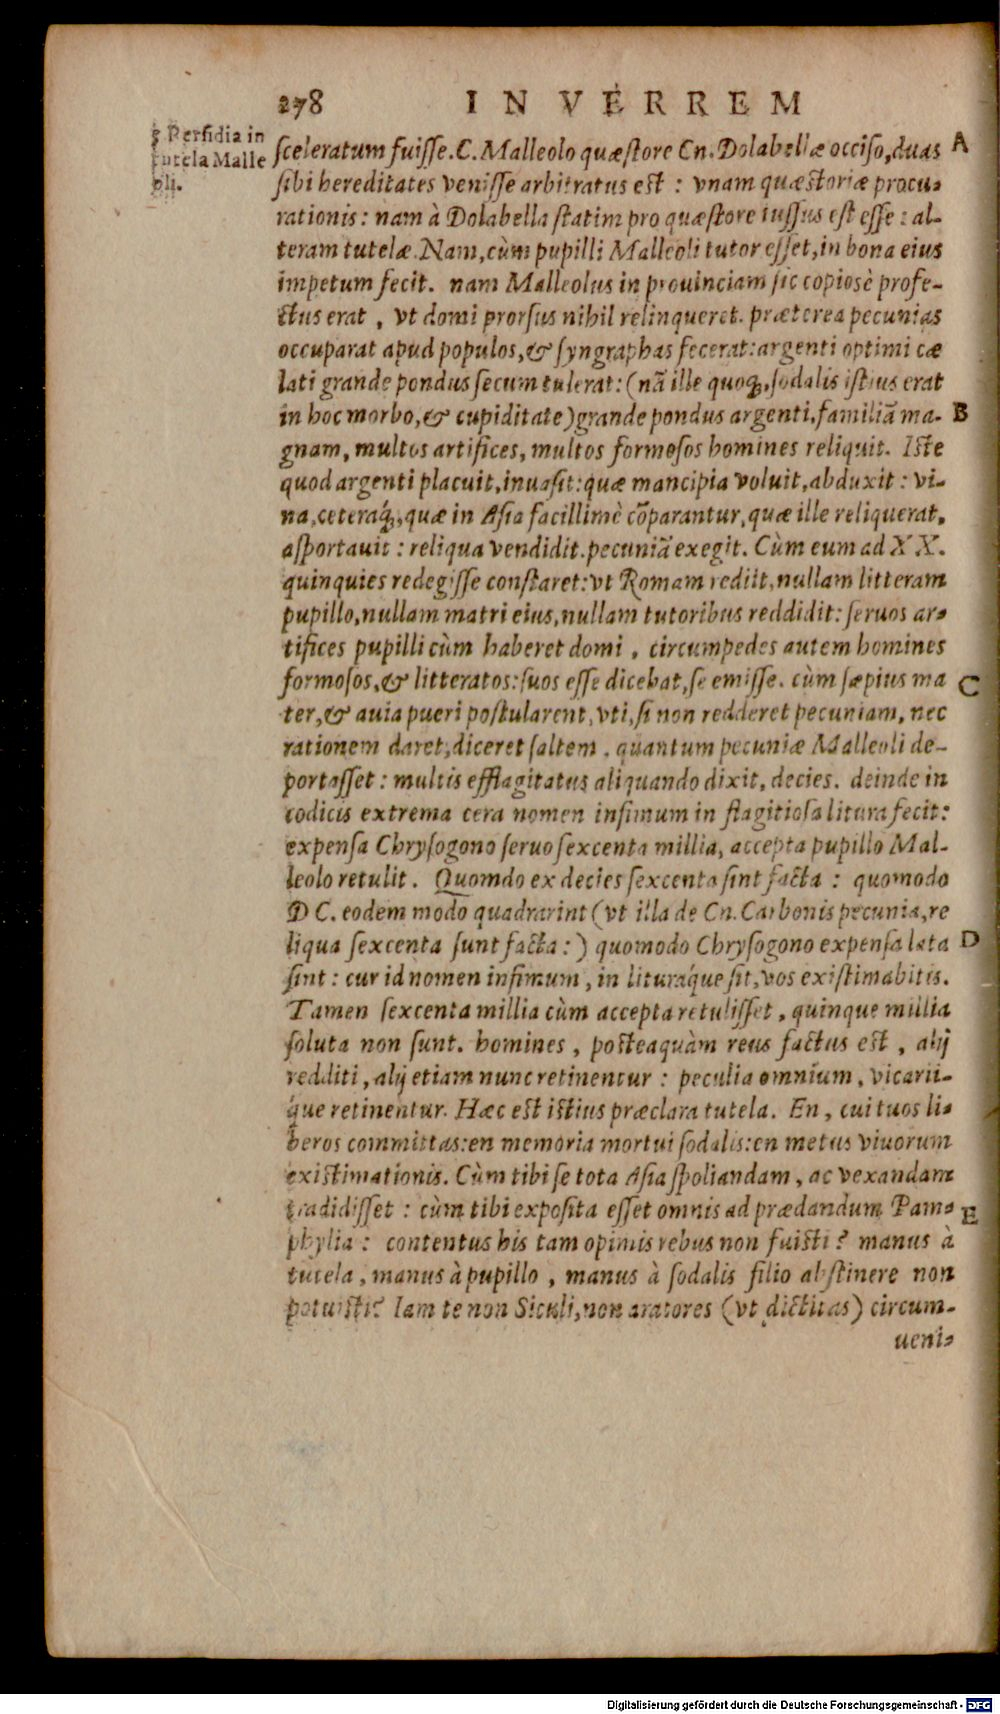 278 IN VERREM
g Perfidia in
tutela Malle
oli.
sceleratum fuisse. C. Malleolo quæstore Cn. Dolabellæ occiso, duas A
sibi hereditates venisse arbitratus est : vnam quæstoriæ procu-
rationis: nam à Dolabella statim pro quæstore iussus est esse : al-
teram tutelæ. Nam, cùm pupilli Malleoli tutor esset, in bona eius
impetum fecit. nam Malleolus in prouinciam sic copiosè profe-
ctus erat , vt domi prorsus nihil relinqueret. præterea pecunias
occuparat apud populos, & syngraphas fecerat: argenti optimi cæ
lati grande pondus secum tulerat: (nã ille quoq;, sodalis istius erat
in hoc morbo, & cupiditate) grande pondus argenti, familiã ma- B
gnam, multos artifices, multos formosos homines reliquit. Iste
quod argenti placuit, inuasit: quæ mancipia voluit, abduxit : vi-
na, ceteraq́;, quæ in Asia facillimè cõparantur, quæ ille reliquerat,
asportauit : reliqua vendidit. pecuniã exegit. Cùm eum ad XX.
quinquies redegisse constaret: vt Romam rediit, nullam litteram
pupillo, nullam matri eius, nullam tutoribus reddidit: seruos ar-
tifices pupilli cùm haberet domi , circumpedes autem homines
formosos, & litteratos: suos esse dicebat, se emisse. cùm sæpius ma C
ter, & auia pueri postularent, vti, si non redderet pecuniam, nec
rationem daret, diceret saltem , quantum pecuniæ Malleoli de-
portasset : multis efflagitatus aliquando dixit, decies. deinde in
codicis extrema cera nomen infimum in flagitiosa litura fecit:
expensa Chrysogono seruo sexcenta millia, accepta pupillo Mal-
leolo retulit. Quomdo ex decies sexcenta sint facta : quomodo
DC. eodem modo quadrarint (vt illa de Cn. Carbonis pecunia, re
liqua sexcenta sunt facta : ) quomodo Chrysogono expensa lata D
sint : cur id nomen infimum , in lituraq́ue sit, vos existimabitis.
Tamen sexcenta millia cùm accepta retulisset , quinque millia
soluta non sunt. homines , posteaquàm reus factus est , alij
redditi, alij etiam nunc retinentur : peculia omnium, vicarii-
q́ue retinentur. Hæc est istius præclara tutela. En, cui tuos li-
beros committas: en memoria mortui sodalis: en metus viuorum
existimationis. Cùm tibi se tota Asia spoliandam, ac vexandam
tradidisset : cùm tibi exposita esset omnis ad prædandum Pam- E
phylia : contentus his tam opimis rebus non fuisti? manus à
tutela, manus à pupillo , manus à sodalis filio abstinere non
potuisti? Iam te non Siculi, non aratores (vt dictitas) circum-
ueni-
Digitalisierung gefördert durch die Deutsche Forschungsgemeinschaft - DFG